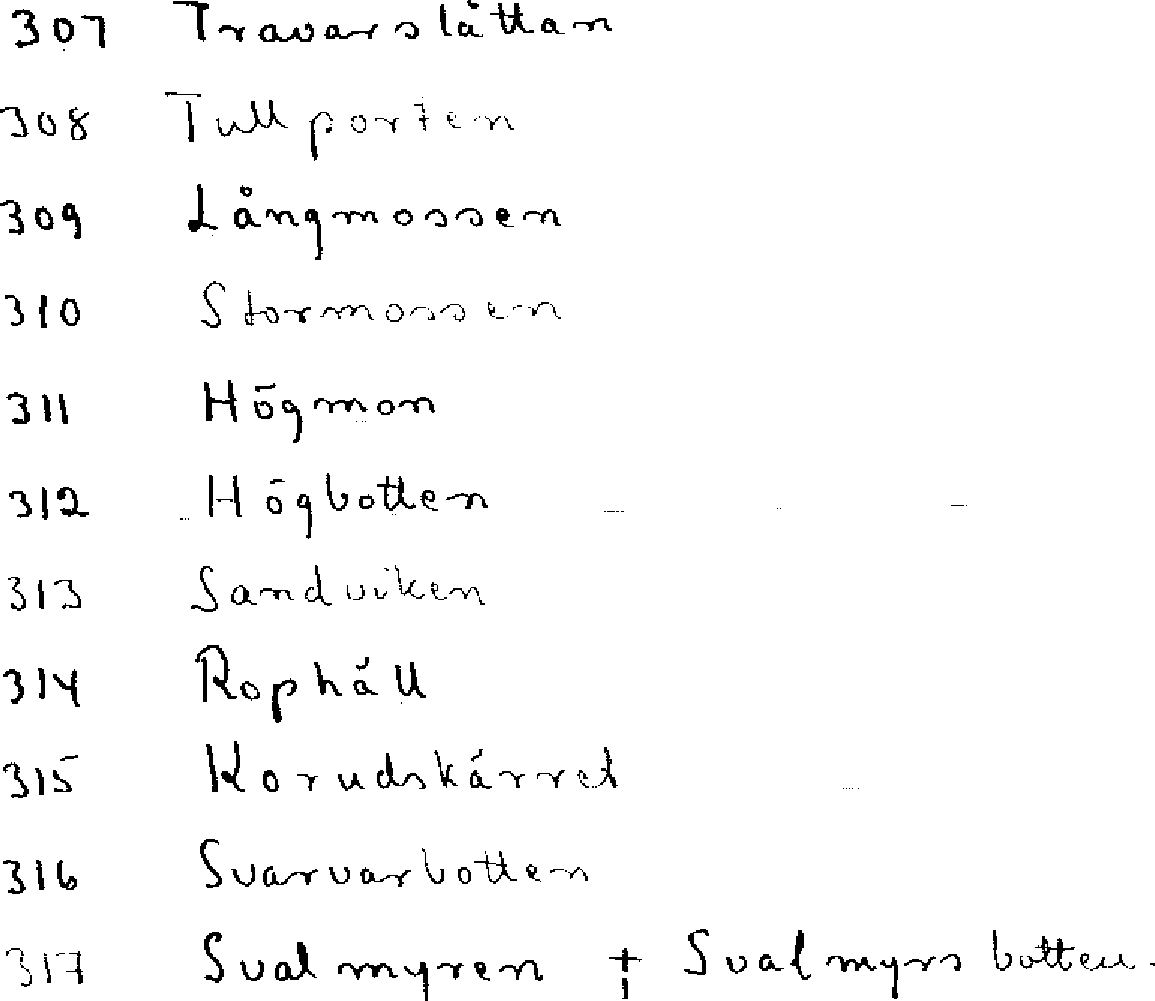 307 Travarslåttan
308 Tullporten
309 Långmossen
310 Stormossen
311 Högmon
312 Högbotten
313 Sandviken
314 Rophäll
315 Korudskärret
316 Svarvarbotten
317 Svalmyren + Svalmyrsbotten.